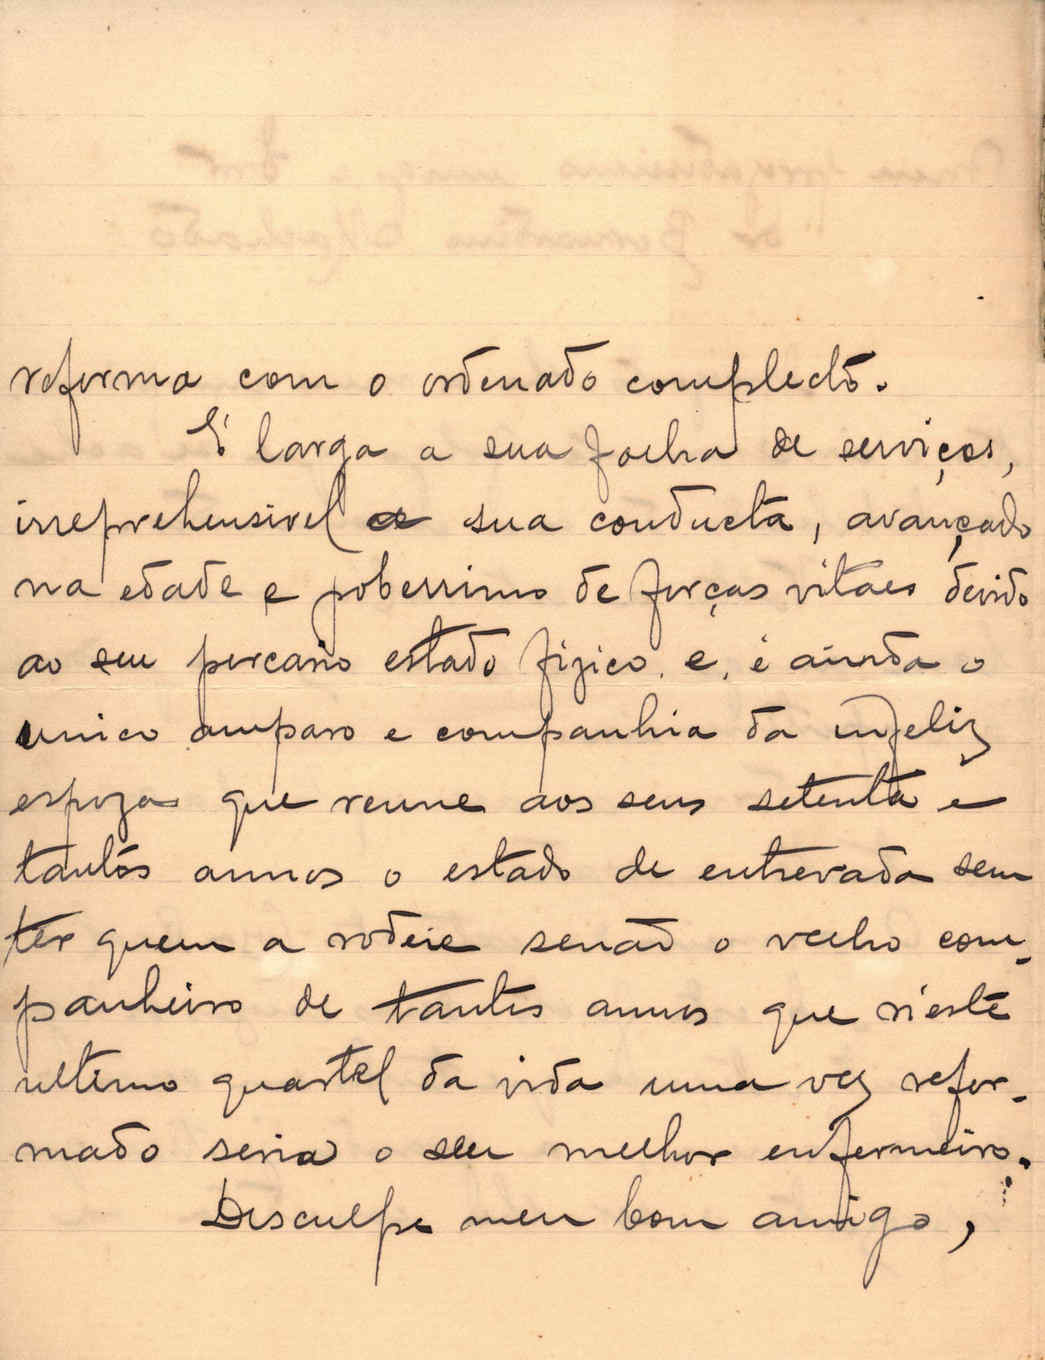 reforma com o ordenado complecto.
É larga a sua foelha de serviços,
irreprehensivel a sua conducta, avançado
na edade e poberrimo de forças vitaes devido
ao seu percario estado fizico. e, é ainda o
unico amparo e companhia da infeliz
espoza que reune aos seus setenta e
tantos annos o estado de entrevada sem
ter quem a rodeie senão o velho com-
panheiro de tantos annos que n'este
ultimo quartel da vida uma vez refor-
mado seria o seu melhor enfermeiro.
Desculpe meu bom amigo,